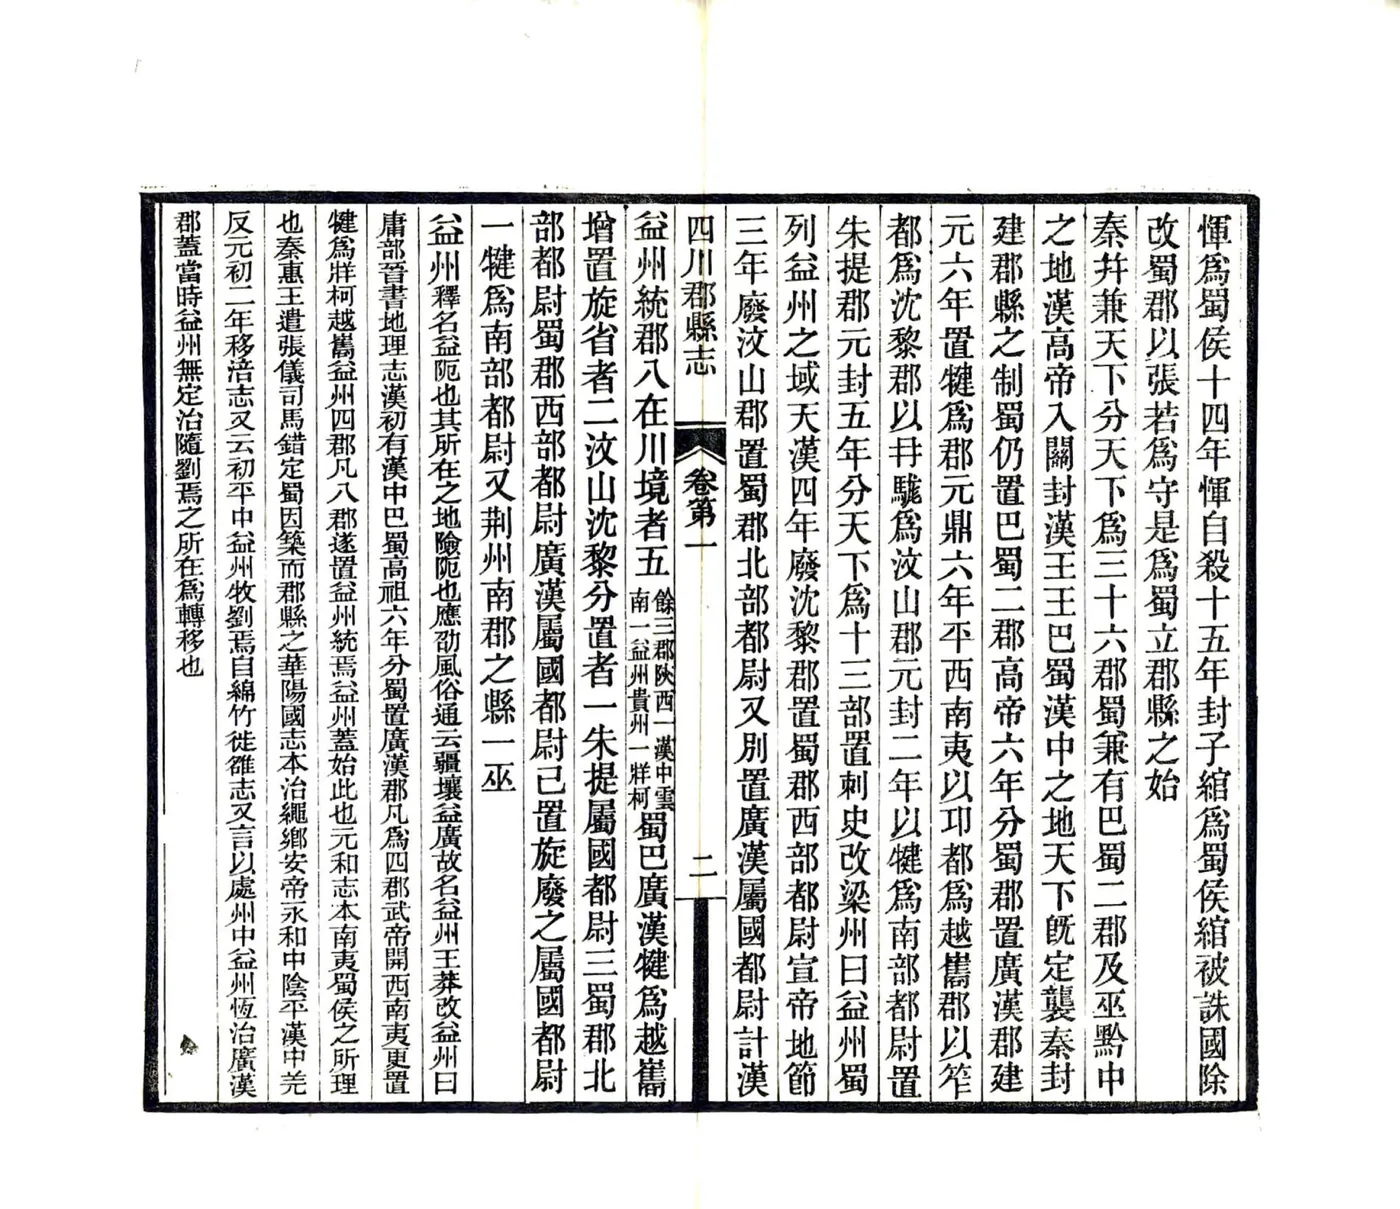 惲爲蜀侯十四年惲自殺十五年封子綰爲蜀侯綰被誅國除
改蜀郡以張若爲守是爲蜀立郡縣之始
秦幷兼天下分天下爲三十六郡蜀兼有巴蜀二郡及巫黔中
之地漢高帝入關封漢王王巴蜀漢中之地天下旣定襲秦封
建郡縣之制蜀仍置巴蜀二郡高帝六年分蜀郡置廣漢郡建
元六年置犍爲郡元鼎六年平西南夷以邛都爲越巂郡以笮
都爲沈黎郡以冄駹爲汶山郡元封二年以犍爲南部都尉置
朱提郡元封五年分天下爲十三部置刺史改梁州曰益州蜀
列益州之域天漢四年廢沈黎郡置蜀郡西部都尉宣帝地節
三年廢汶山郡置蜀郡北部都尉又別置廣漢屬國都尉計漢
四川郡縣志 卷第一 二
益州統郡八在川境者五餘三郡陝西一漢中雲南一益州貴州一牂柯蜀巴廣漢犍爲越巂
增置旋省者二汶山沈黎分置者一朱提屬國都尉三蜀郡北
部都尉蜀郡西部都尉廣漢屬國都尉已置旋廢之屬國都尉
一犍爲南部都尉又荆州南郡之縣一巫
益州釋名益阨也其所在之地險阨也應劭風俗通云疆壤益廣故名益州王莽改益州曰
庸部晉書地理志漢初有漢中巴蜀高祖六年分蜀置廣漢郡凡爲四郡武帝開西南夷更置
犍爲牂柯越巂益州四郡凡八郡遂置益州統焉益州蓋始此也元和志本南夷蜀侯之所理
也秦惠王遣張儀司馬錯定蜀因築而郡縣之華陽國志本治繩鄉安帝永和中陰平漢中羌
反元初二年移涪志又云初平中益州牧劉焉自綿竹徙雒志又言以處州中益州恆治廣漢
郡蓋當時益州無定治隨劉焉之所在爲轉移也